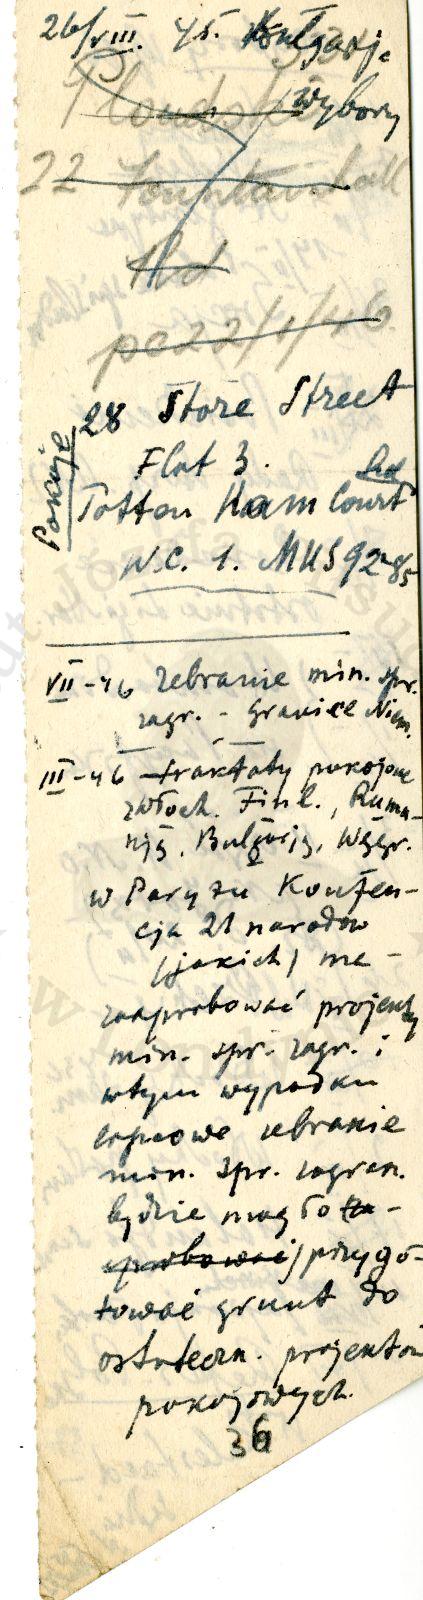 26/VIII. 45. Bułgarje
wybory
22 Fountainhall
Rd
pc 22/1/46.
28 Store Street
Flat 3. Rd
Totton Ham Court
W.C. 1. MUS 92-85
Pokoje
VII-46 Zebranie min. spr.
zagr. - Granice Niem.
III-46 traktaty pokojowe
z włoch. Finl., Rumu-
nją, Bułgarją, Węgr.
w Paryżu Konfen-
cja 21 narodów
(jakich) ma -
zaaprobować projekty
min. spr. zagr. i
w tym wypadku
lipcowe zebranie
min. spr. zagran.
będzie mogło za-
aprobować) przygo-
tować grunt do
ostateczn. projektów
pokojowych.
36